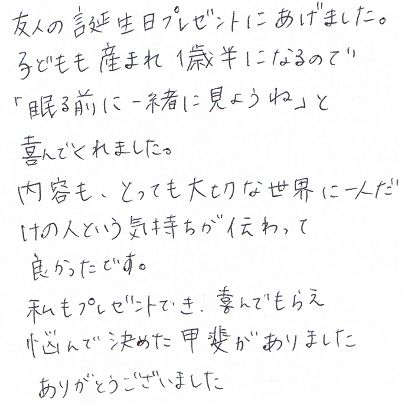 友人の誕生日プレゼントにあげました。
子どもも産まれ1歳半になるので
「眠る前に一緒に見ようね」と
喜んでくれました。
内容も、とっても大切な世界に一人だ
けの人という気持ちが伝わって
良かったです。
私もプレゼントでき、喜んでもらえ
悩んで決めた甲斐がありました
ありがとうございました